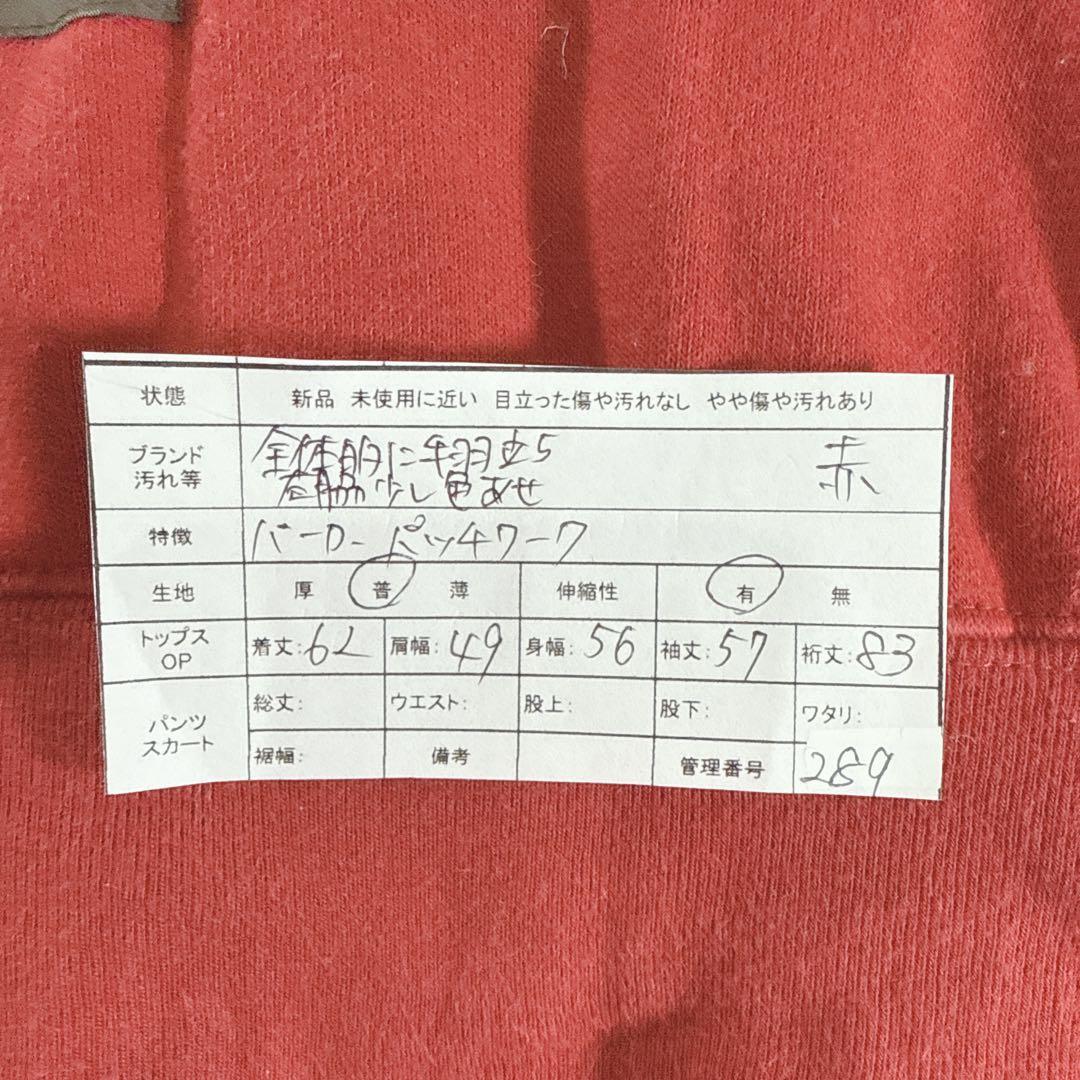 状態 新品 未使用に近い 目立った傷や汚れなし やや傷や汚れあり
ブランド 汚れ等 全体的に毛羽立ち 赤
右脇少し色あせ
特徴 パーカー パッチワーク
生地 厚 普 薄 伸縮性 有 無
トップス OP 着丈:62 肩幅:49 身幅:56 袖丈:57 裄丈:83
パンツ スカート 総丈: ウエスト: 股上: 股下: ワタリ:
裾幅: 備考 管理番号 289